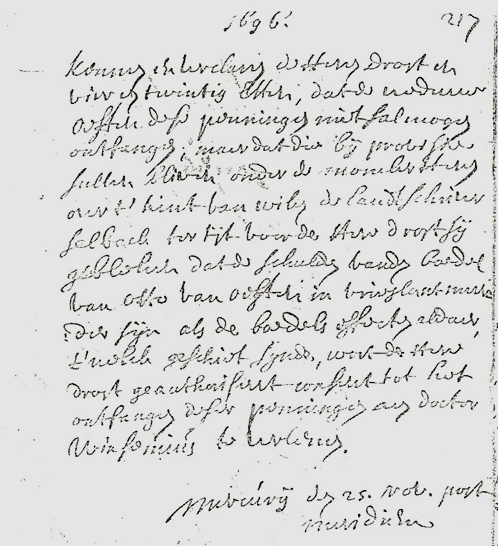 1696. 217
kennen en verclaren de Heere Drost en
vier en twintig Etten, dat de weduwe
Oesten dese penningen niet sal mogen
ontfangen, maer dat die bij provisie
sullen blieven onder de momber Heere
over t' kint van wilen de Landtschriver
Selbach ter tijt voor de Here drost sij
gebleken dat de schulden vanden boedel
van Otto van Oesten in vrieslant min-
der sijn als de boedels effecten aldaer,
t'welck geschiet sijnde, wort de Here
drost geauthoriseert consent tot het
ontfangen deser penningen aen doctor
Winsemius te verlenen.
Mercurij den 25. Nov. post
meridiem